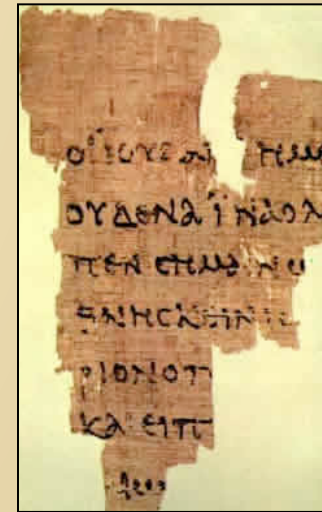 ΟΙ ΙΟΥΔΑΙ ΗΜ
ΟΥΔΕΝΑ ΪΝΑΟΛ
ΠΕΝ ϹΗΜΑΙΝΩ
ΘΝΗϹΚΕΙΝ ΙϹ
ΡΙΟΝΟΠ
ΚΑΙ ΕΙΠ